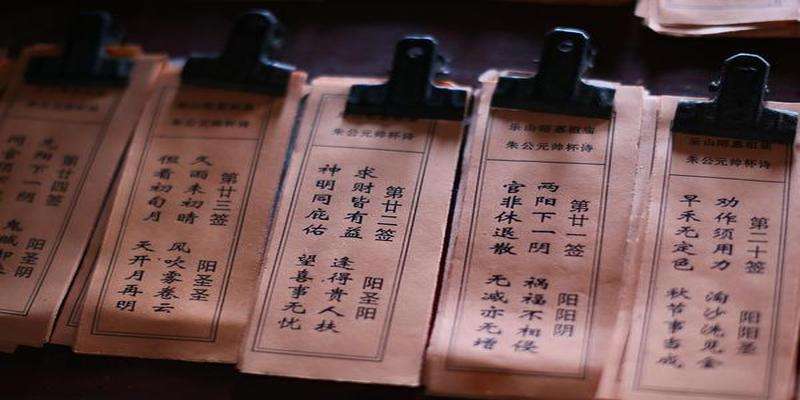 第廿四签 阳圣阴
先阳下一阴
第廿三签 阳圣圣
久雨未初晴 风吹雾卷云
但看初旬月 天开月再明
朱公元帅杯诗
第廿二签 阳圣阳
求财皆有益 逢得贵人扶
神明同庇佑 望喜事无忧
朱公元帅杯诗
第廿一签 阳阳阴
两阳下一阴 祸福不相侵
官非休退散 无减亦无增
朱公元帅杯诗
第二十签 阳阳圣
劝作须用力 淘沙洗见金
早禾无定色 秋节事当成